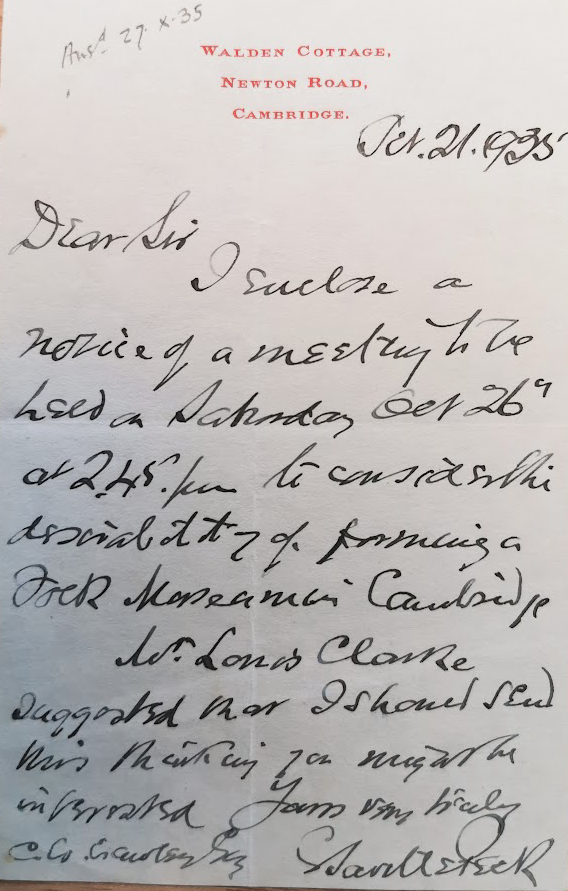 Ansd. 27.X.35
WALDEN COTTAGE,
NEWTON ROAD,
CAMBRIDGE.
Oct. 21. 1935
Dear Sir
I enclose a
notice of a meeting to be
held on Saturday Oct 26th
at 2.45. pm to consider the
desirability of forming a
Folk Museum in Cambridge
Mr. Louis Clarke
suggested that I should send
this thinking you might be
interested Yours very truly
C. W. Crawley Esq